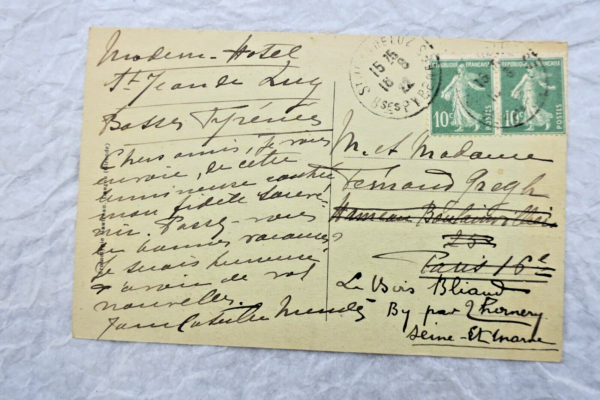 Modern-Hotel
St Jean de Luz
Basses Pyrénées
Chers amis, je vous
envoie, de cette
lumineuse contrée
mon fidèle souve-
nir. Passez-vous
de bonnes vacances?
Je serais heureuse
d'avoir de vos
nouvelles.
Jane Catulle Mendès
ST JEAN DE LUZ
15 25
16 8
BSES PYRENEES
REPUBLIQUE FRANÇAISE
10c POSTES
REPUBLIQUE FRANÇAISE
10c POSTES
M. et Madame
Fernand Gregh
Hameau Boulainvilliers
25
Paris 16e
Le Bois Bliaud
By par Thomery
Seine-Et-Marne